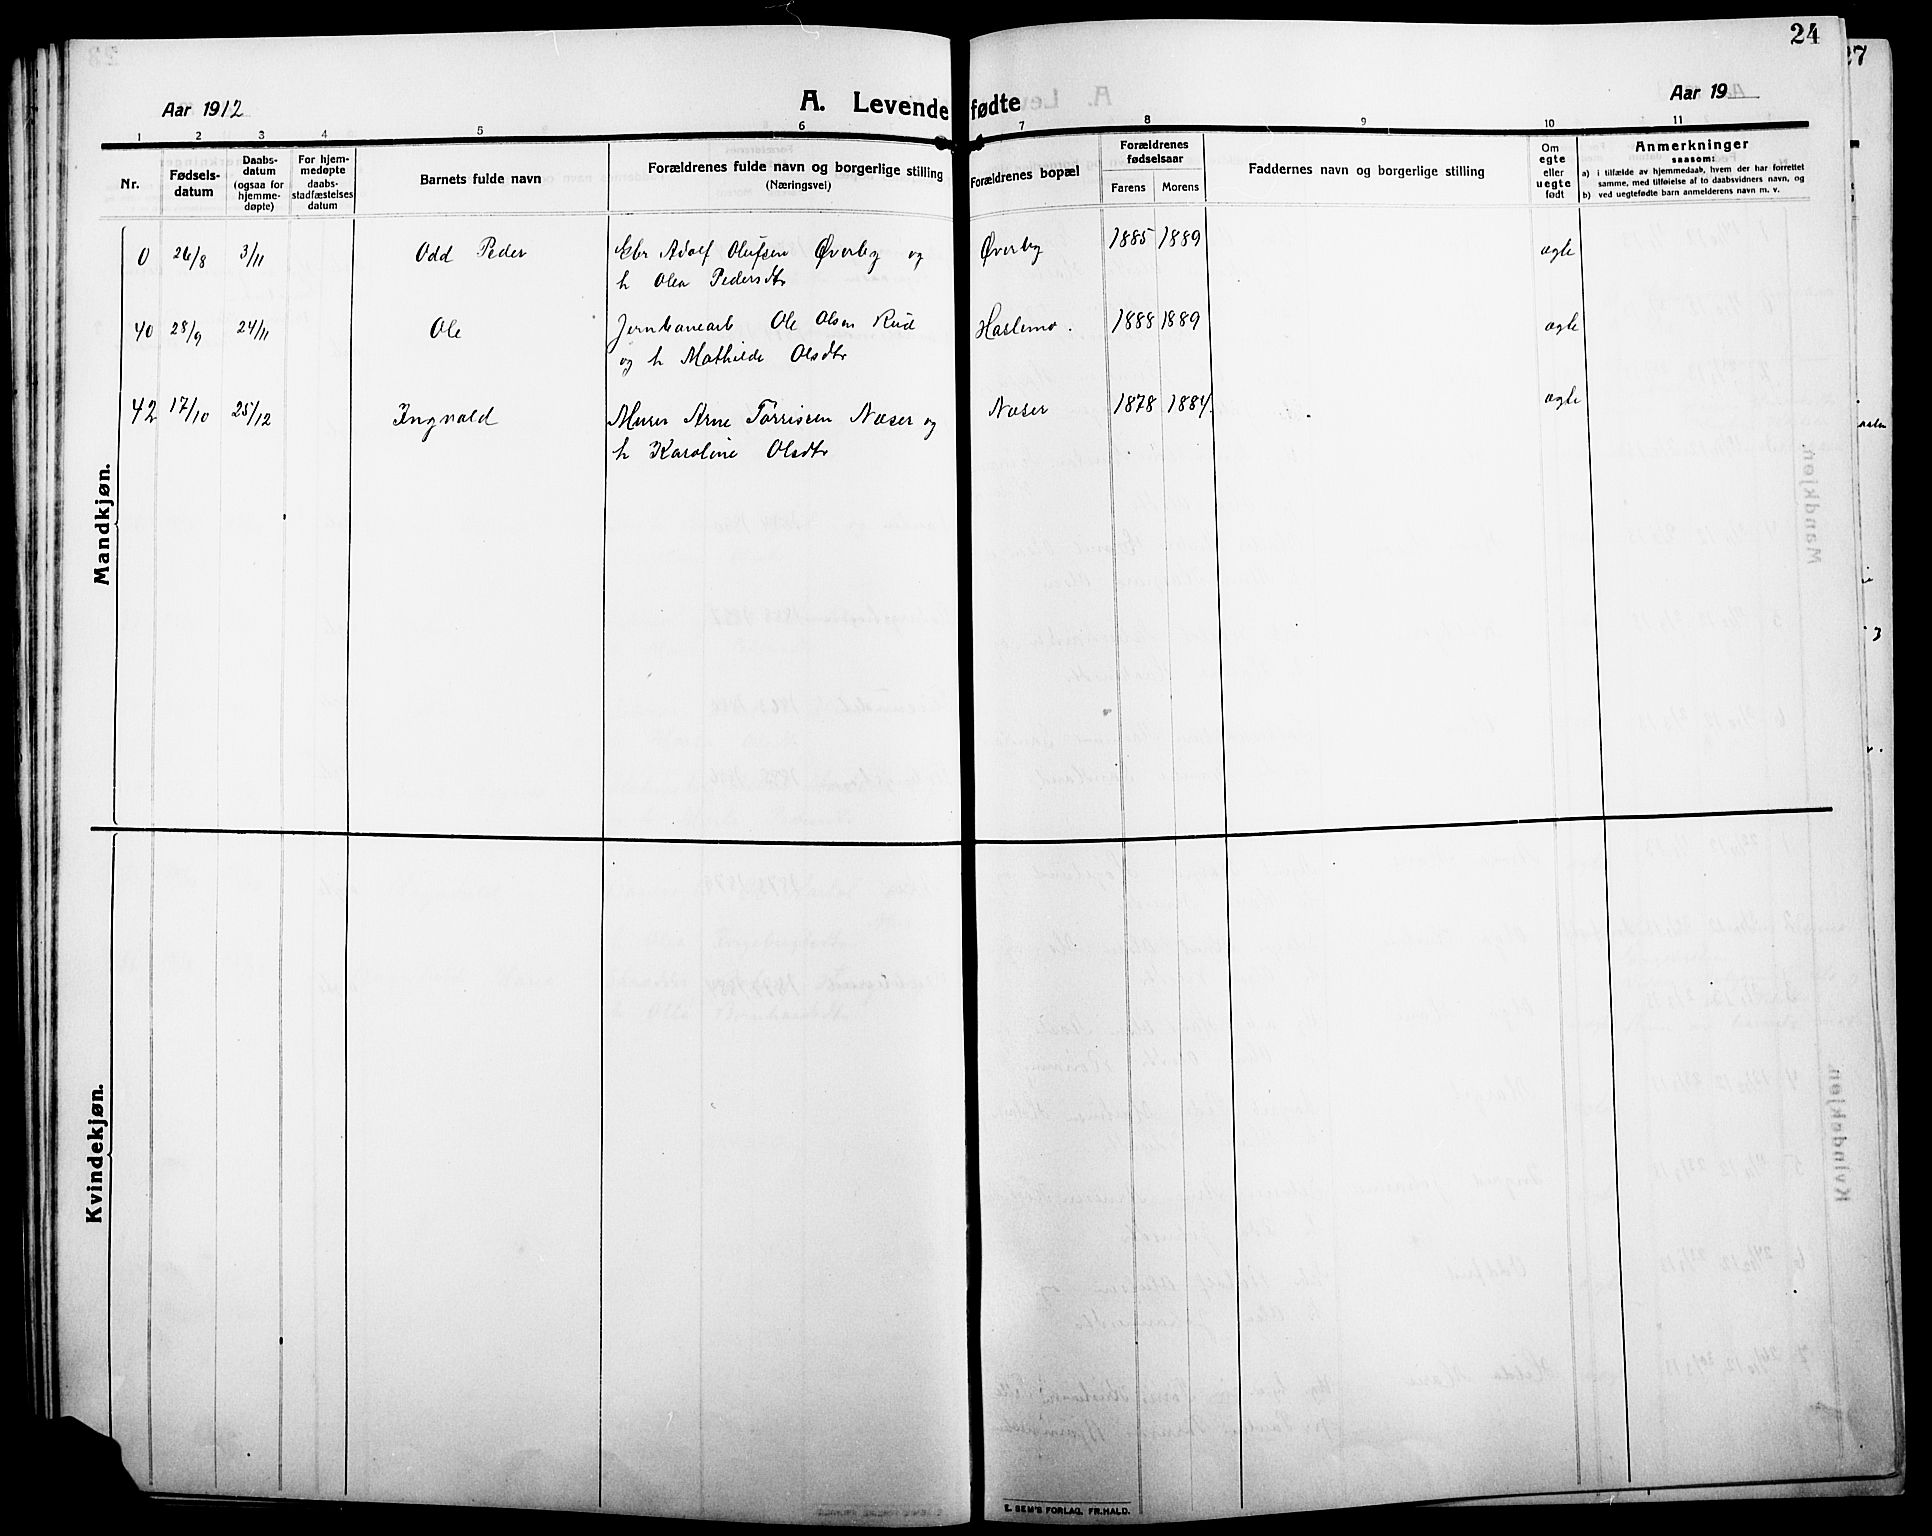 24
Aar 1912
A. Levendefødte
Aar 19
1 2 3 4 5 6 7 8 9 10 11
Nr.
Fødsels-
datum
Daabs-
datum
(ogsaa for
hjemme-
døpte)
For hjem-
medøpte
daabs-
stadfæstelses
datum
Barnets fulde navn
Forældrenes fulde navn og borgerlige stilling
(Næringsvei)
Forældrenes bopæl
Forældrenes
fødselsaar
Farens Morens
Faddernes navn og borgerlige stilling
Om
egte
eller
uegte
født
Anmerkninger
saasom:
a) i tilfælde av hjemmedaab, hvem der har forrettet
samme, med tilføielse af to daabsvidners navn, og
b) ved uegtefødte barn anmelderens navn m. v.
Mandkjøn.
0 26/8 3/11 Odd Peder Adolf Olufsen Øverby og Øverby 1885 1889 ægte
h Olea Pedersdtr
40 28/9 24/11 Ole Jernbanearb Ole Olsen Rud Haslemo. 1888 1889 ægte
og h Mathilde Olsdtr
42 17/10 25/12 Ingvald Murer Arne Torrissen Næser og Næser 1878 1884. ægte
h Karoline Olsdtr
Kvindekjøn.
E. SEM'S FORLAG, FR.HALD.
27